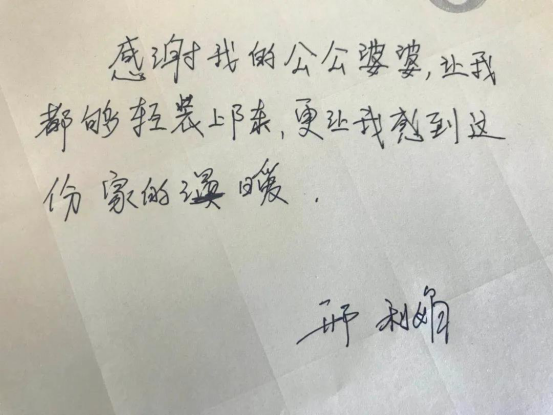 感谢我的公公婆婆,让我
都够轻装上阵,更让我感到这
份家的温暖.
邢利娟